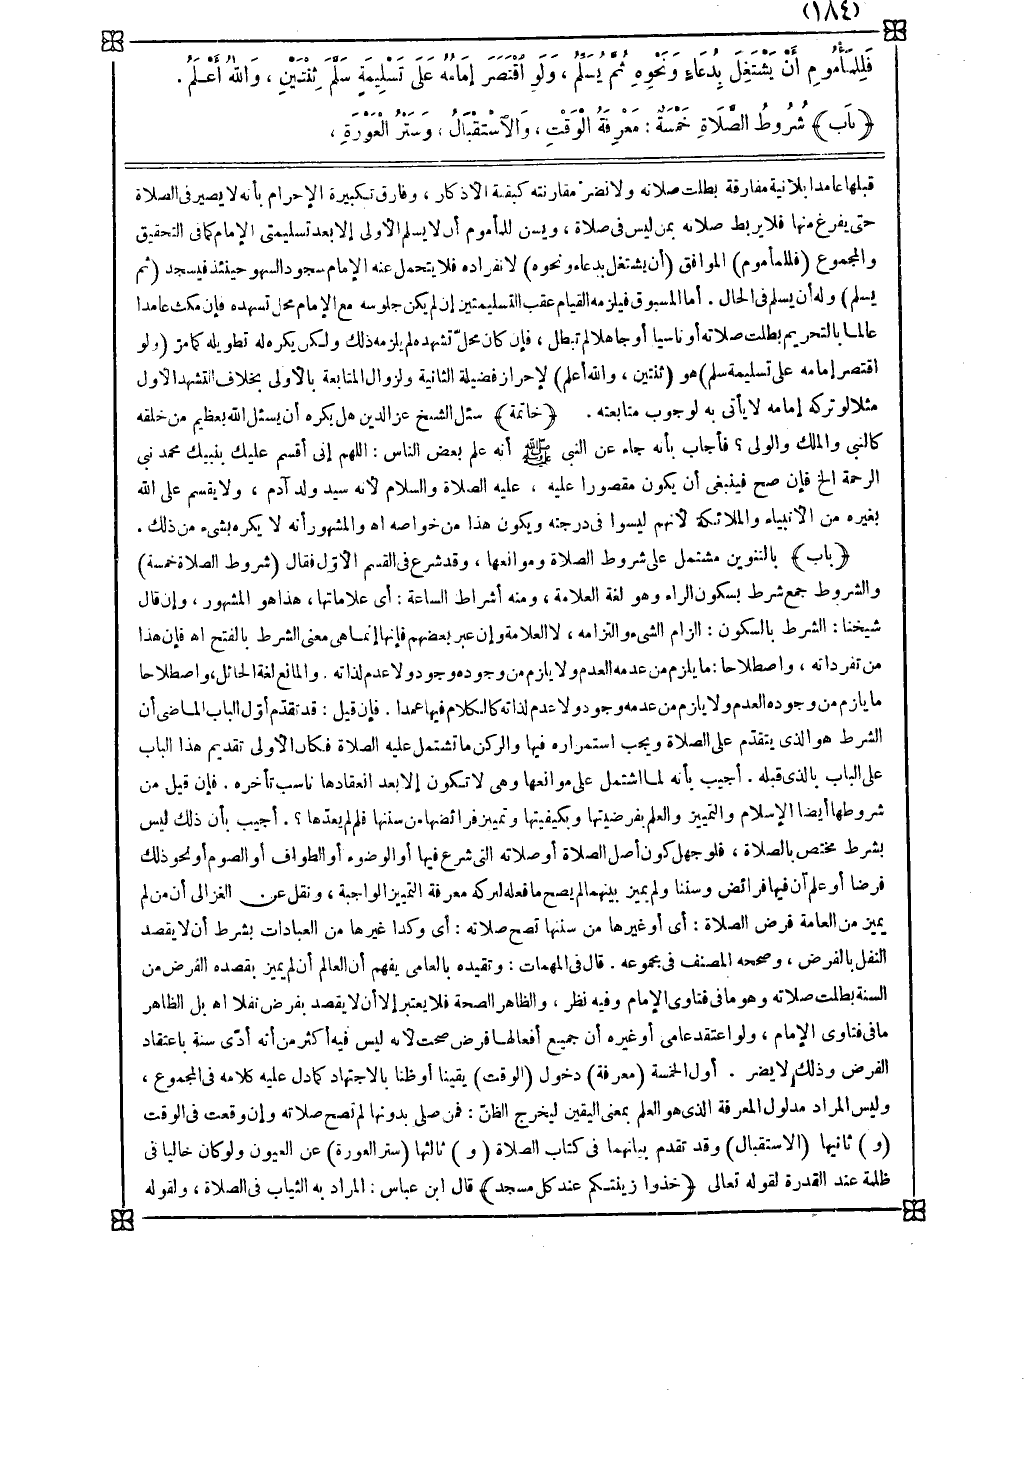 (١٨٤)
فَلِلْمَأْمُومِ أَنْ يَشْتَغِلَ بِدُعَاءٍ وَنَحْوِهِ ثُمَّ يُسَلِّمُ ، وَلَوِ اقْتَصَرَ إِمَامُهُ عَلَى تَسْلِيمَةٍ سَلَّمَ ثِنْتَيْنِ ، وَاللهُ أَعْلَمُ .
﴿بَاب﴾ شُرُوطُ الصَّلَاةِ خَمْسَةٌ : مَعْرِفَةُ الْوَقْتِ ، وَالاَسْتِقْبَالُ ، وَسَتْرُ الْعَوْرَةِ ،
قبلها عامدا بلا نية مفارقة بطلت صلاته ولا تضر مقارنته كبقية الأذكار ، وفارق تكبيرة الإحرام بأنه لا يصير فى الصلاة
حتى يفرغ منها فلا يربط صلاته بمن ليس فى صلاة ، ويسن للمأموم أن لا يسلم الأولى إلا بعد تسليمتى الإمام كما فى التحقيق
والمجموع (فللمأموم) الموافق (أن يشتغل بدعاء ونحوه) لانفراده فلا يتحمل عنه الإمام سجود السهو حينئذ فيسجد (ثم
يسلم) وله أن يسلم فى الحال . أما المسبوق فيلزمه القيام عقب التسليمتين إن لم يكن جلوسه مع الإمام محل تشهده فإن مكث عامدا
عالما بالتحريم بطلت صلاته أو ناسيا أو جاهلا لم تبطل ، فإن كان محلّ تشهده لم يلزمه ذلك ولكن يكره له تطويله كما مرّ (ولو
اقتصر إمامه على تسليمة سلم) هو (ثنتين ، والله أعلم) لإحراز فضيلة الثانية ولزوال المتابعة بالأولى بخلاف التشهد الأول
مثلا لو تركه إمامه لا يأتى به لوجوب متابعته . ﴿خاتمة﴾ سئل الشيخ عز الدين هل يكره أن يسئل الله بعظيم من خلقه
كالنبى والملك والولى ؟ فأجاب بأنه جاء عن النبى ﷺ أنه علم بعض الناس : اللهم إنى أقسم عليك بنبيك محمد نبى
الرحمة الخ فإن صح فينبغى أن يكون مقصورا عليه ، عليه الصلاة والسلام لأنه سيد ولد آدم ، ولا يقسم على الله
بغيره من الأنبياء والملائكة لأنهم ليسوا فى درجته ويكون هذا من خواصه اه والمشهور أنه لا يكره بشىء من ذلك .
﴿باب﴾ بالتنوين مشتمل على شروط الصلاة وموانعها ، وقد شرع فى القسم الأوّل فقال (شروط الصلاة خمسة)
والشروط جمع شرط بسكون الراء وهو لغة العلامة ، ومنه أشراط الساعة : أى علاماتها ، هذا هو المشهور ، وإن قال
شيخنا : الشرط بالسكون : الزام الشىء والتزامه ، لا العلامة وإن عبر بعضهم فإنها إنما هى معنى الشرط بالفتح اه فإن هذا
من تفرداته ، واصطلاحا : ما يلزم من عدمه العدم ولا يلزم من وجوده وجود ولا عدم لذاته . والمانع لغة الحائل ، واصطلاحا
ما يلزم من وجوده العدم ولا يلزم من عدمه وجود ولا عدم لذاته كالكلام فيها عمدا . فإن قيل : قد تقدّم أوّل الباب الماضى أن
الشرط هو الذى يتقدّم على الصلاة ويجب استمراره فيها والركن ما تشتمل عليه الصلاة فكان الأولى تقديم هذا الباب
على الباب بالذى قبله . أجيب بأنه لما اشتمل على موانعها وهى لا تكون إلا بعد انعقادها ناسب تأخره . فإن قيل من
شروطها أيضا الإسلام والتمييز والعلم بفرضيتها وبكيفيتها وتمييز فرائضها من سننها فلم لم يعدّها ؟ . أجيب بأن ذلك ليس
بشرط مختص بالصلاة ، فلو جهل كون أصل الصلاة أو صلاته التى شرع فيها أو الوضوء أو الطواف أو الصوم أو نحو ذلك
فرضا أو علم أن فيها فرائض وسننا ولم يميز بينهما لم يصح ما فعله لتركه معرفة التمييز الواجبة ، ونقل عن الغزالى أن من لم
يميز من العامة فرض الصلاة : أى أو غيرها من سننها تصح صلاته : أى وكذا غيرها من العبادات بشرط أن لا يقصد
النفل بالفرض ، وصححه المصنف فى مجموعه . قال فى المهمات : وتقيده بالعامى يفهم أن العالم أن لم يميز بقصده الفرض من
السنة بطلت صلاته وهو ما فى فتاوى الإمام وفيه نظر ، والظاهر الصحة فلا يعتبر إلا أن لا يقصد بفرض نفلا اه بل الظاهر
ما فى فتاوى الإمام ، ولو اعتقد عامى أو غيره أن جميع أفعالها فرض صحت لأنه ليس فيه أكثر من أنه أدّى سنة باعتقاد
الفرض وذلك لا يضر . أول الخمسة (معرفة) دخول (الوقت) يقينا أو ظنا بالاجتهاد كما دل عليه كلامه فى المجموع ،
وليس المراد مدلول المعرفة الذى هو العلم بمعنى اليقين ليخرج الظنّ : فمن صلى بدونها لم تصح صلاته وإن وقعت فى الوقت
(و) ثانيها (الاستقبال) وقد تقدم بيانهما فى كتاب الصلاة (و) ثالثها (ستر العورة) عن العيون ولو كان خاليا فى
ظلمة عند القدرة لقوله تعالى ﴿خذوا زينتكم عند كل مسجد﴾ قال ابن عباس : المراد به الثياب فى الصلاة ، ولقوله